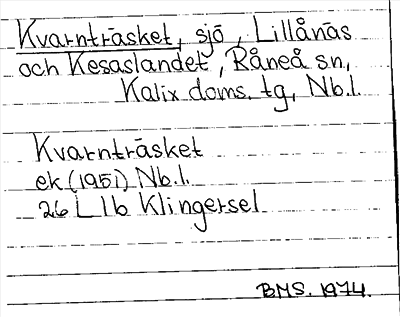 Kvarnträsket, sjö, Lillånäs
och Kesaslandet, Råneå sn,
Kalix doms. tg, Nb.l.
Kvarnträsket
ek (1951) Nb.l.
26 L lb Klingersel
BMS. 1974.